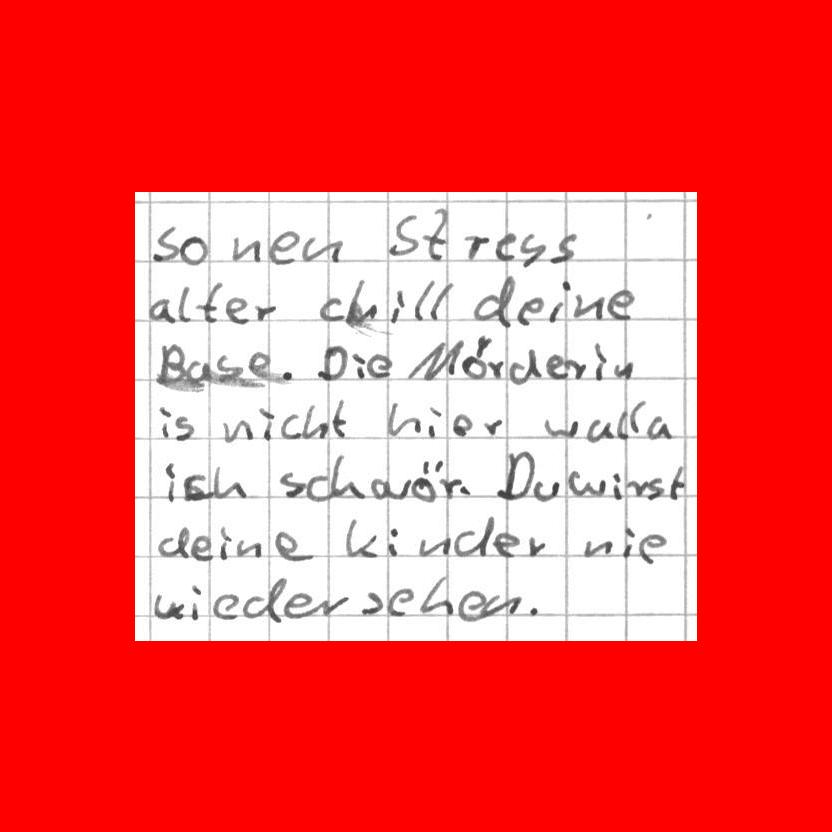 so nen Stress
alter chill deine
Base. Die Mörderin
is nicht hier walla
ich schwör. Du wirst
deine kinder nie
wieder sehen.